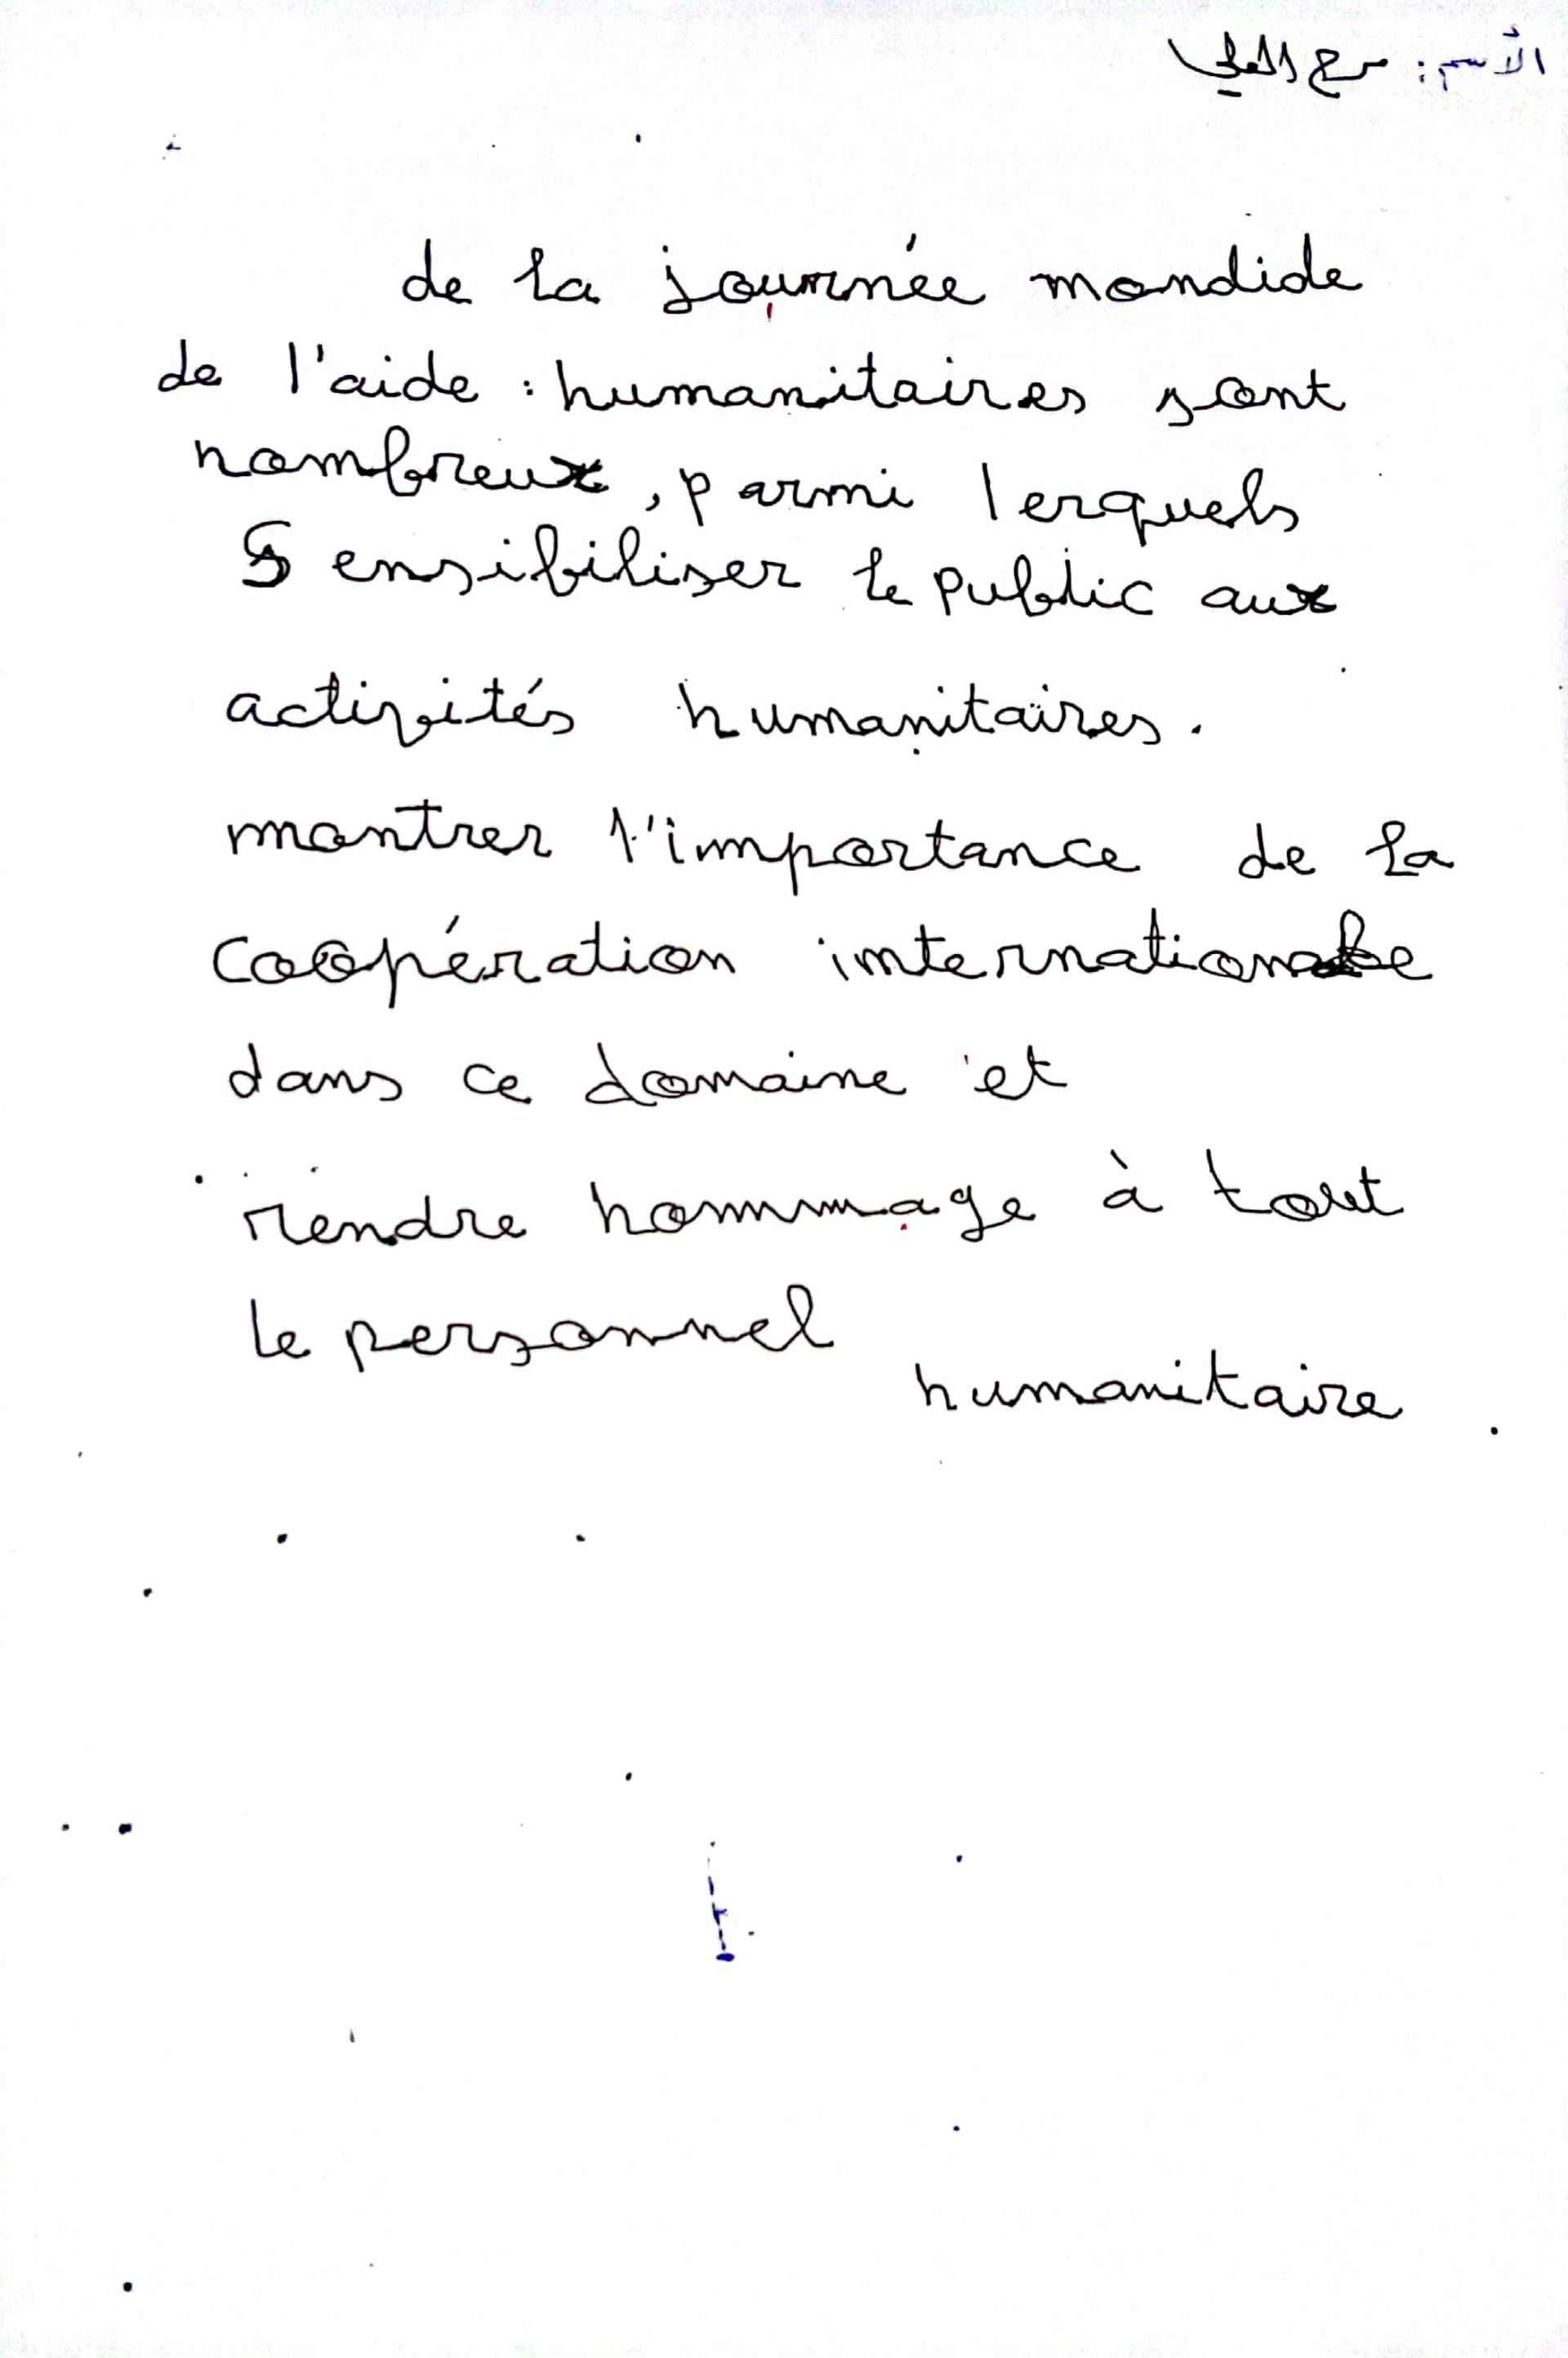 الأسم: مرح العلي
de la journée mondide
de l'aide : humanitaires sont
nombreux, parmi lerquels
Sensibiliser le public aux
activités humanitaires.
montrer l'importance de la
coopération internationale
dans ce domaine et
rendre hommage à tout
le personnel
humanitaire.